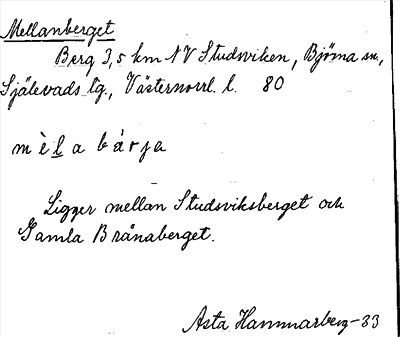 Mellanberget
Berg 3,5 km NV Studsviken, Björna sn.,
Själevads tg., Västernorrl. l. 80
m è l a b á r j a
Ligger mellan Studsviksberget och
Gamla Brånaberget.
Asta Hammarberg-33